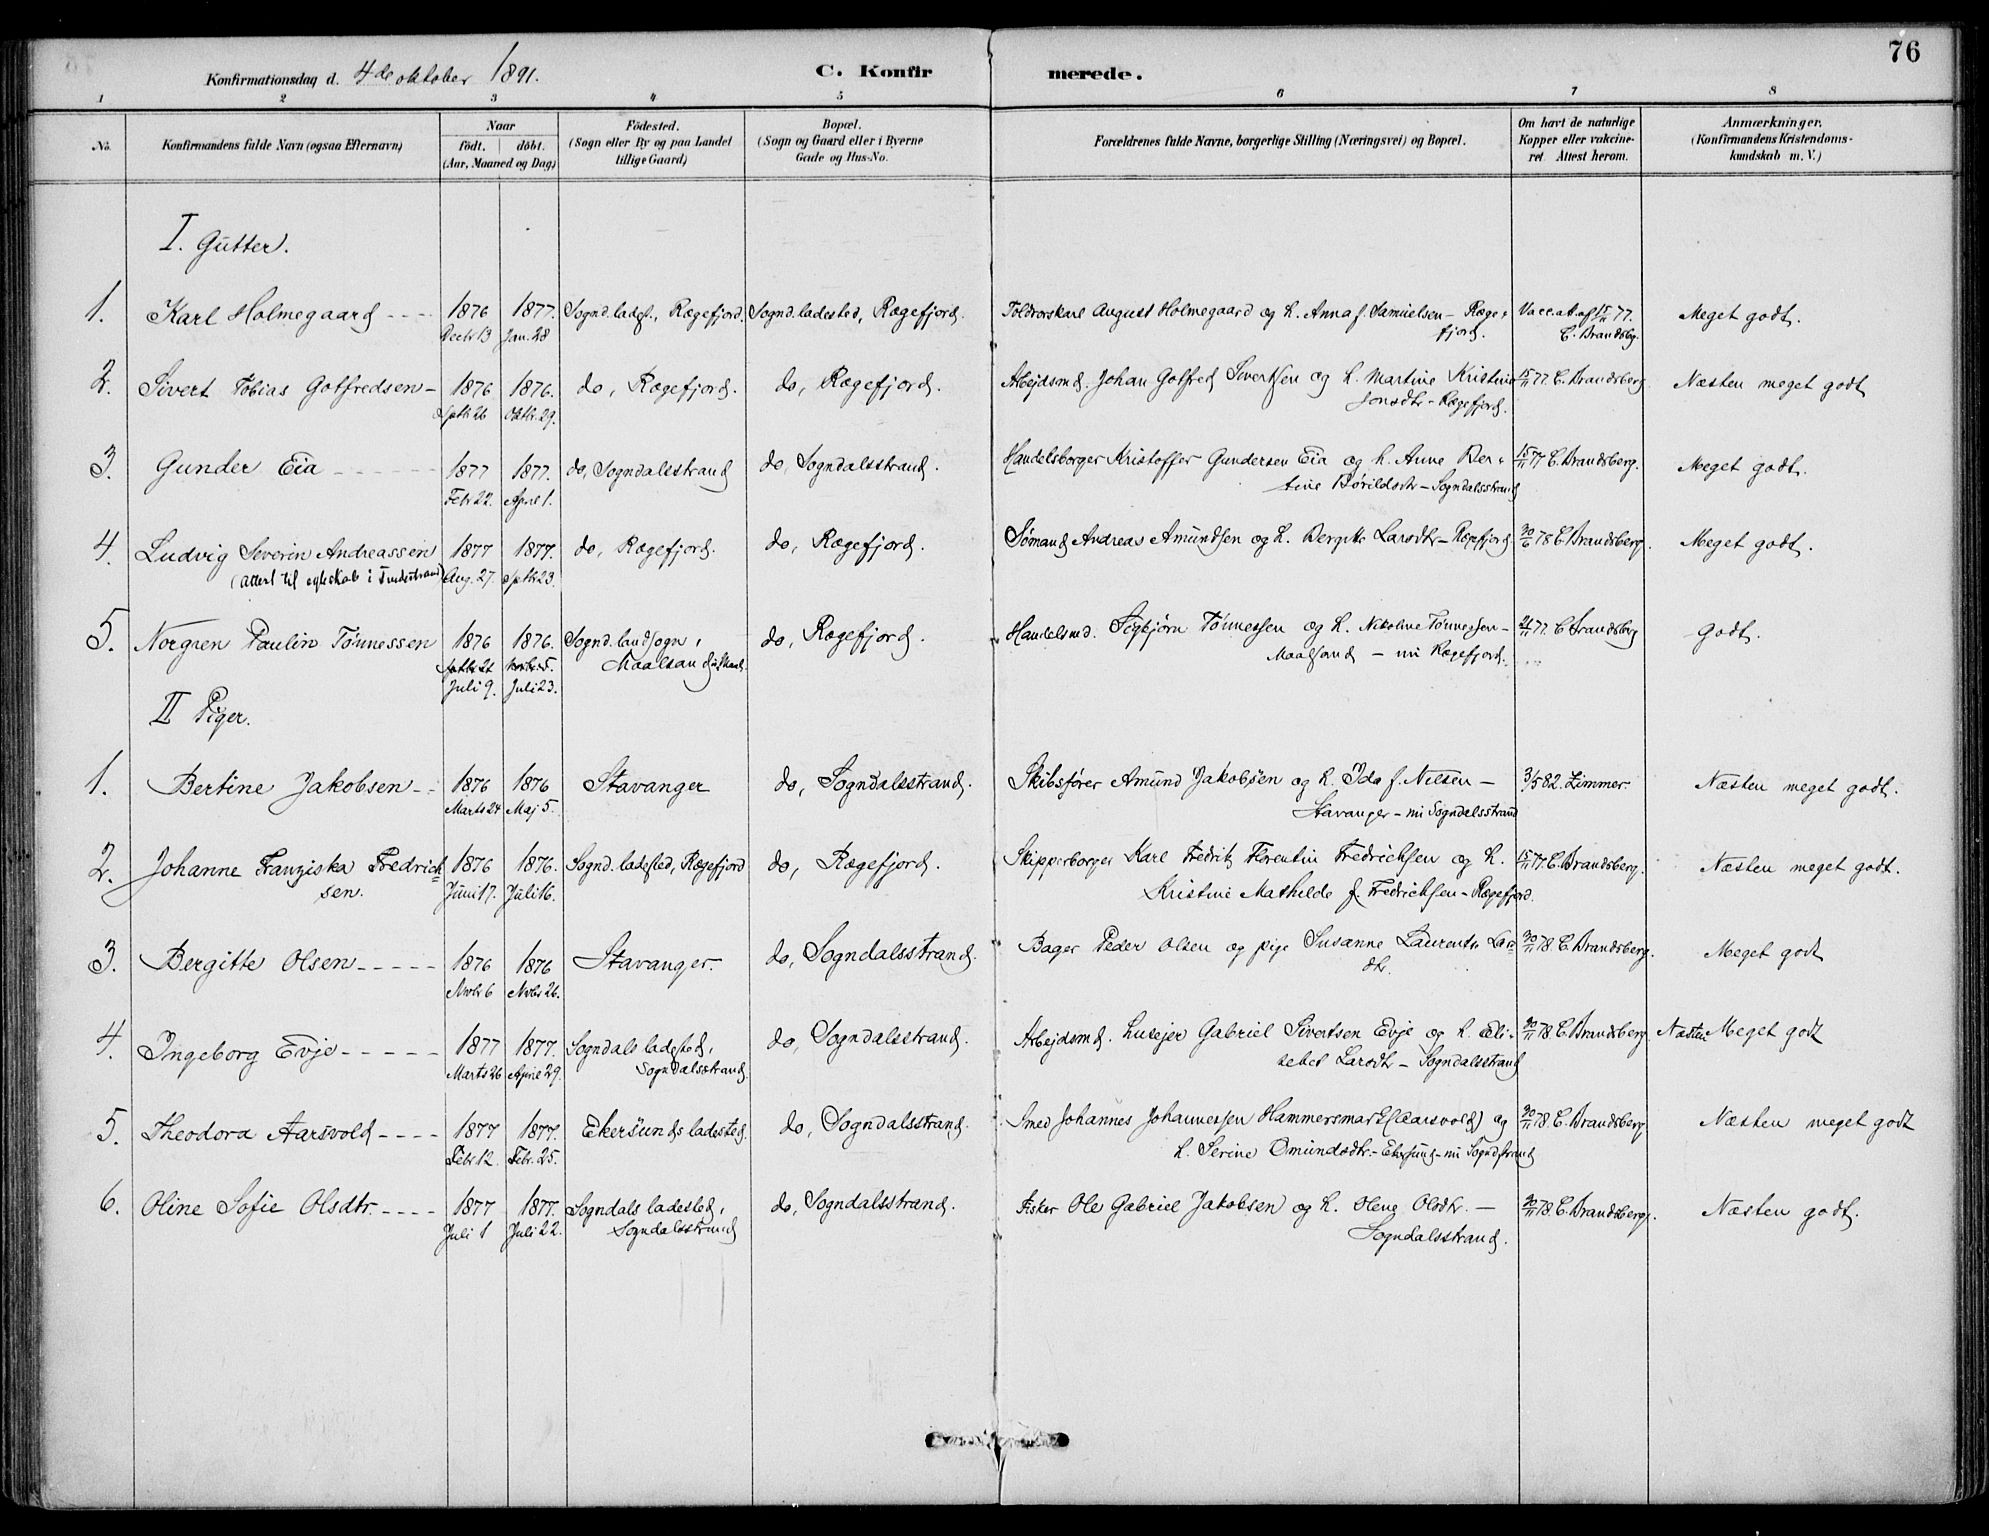 76
Konfirmationsdag d. 4de oktober 1891. C. Konfirmerede.
1 2 3 4 5 6 7 8
No. Konfirmandens fulde Navn (ogsaa Efternavn) Naar födt. döbt. (Aar, Maaned og Dag) Födested. (Sogn eller By og paa Landet tillige Gaard) Bopæl. (Sogn og Gaard eller i Byerne Gade og Hus-No. Forældrenes fulde Navne, borgerlige Stilling (Næringsvei) og Bopæl. Om havt de naturlige Kopper eller vakcineret Attest herom. Anmærkninger. (Konfirmandens Kristendomskundskab m. V.)
I. Gutter.
1. Karl Holmegaard 1876 1877. Sognd. ladest., Rægefjord. Sognd. ladested, Rægefjord. Toldrorskarl August Holmegaard og h. Anna f. Samuelsen – Ræge- Vacc. att. af 15/11 77. Meget godt.
Decbr 13 Jan. 28 fjord. C. Brandsbg.
2. Sivert Tobias Gotfredsen 1876 1876. do, Rægefjord. do, Rægefjord. Arbejdsmd. Johan Gotfred Sivertsen og h. Martine Kristine 15/11 77. C. Brandsberg Næsten meget godt
Septbr 26 Oktbr. 29. Jonsdtr – Rægefjord.
3. Gunder Eia 1877 1877. do, Sogndalsstrand do, Sogndalsstrand. Handelsborger Kristoffer Gundersen Eia og h. Anne Ber- 15/11 77 C. Brandsberg. Meget godt.
Febr 22. April 1. tine Bórildsdtr – Sogndalsstrand
4. Ludvig Severin Andreassen 1877 1877. do, Rægefjord. do, Rægefjord. Sømand Andreas Amundsen og h. Bergitte Larsdtr – Rægefjord 78 C. Brandsberg. Meget godt.
(Attest til egteskab i Tvedestrand) Aug. 27. Septbr 23.
5. Norgren Paulin Tónnessen 1876 1876. Sognd. landsogn, do, Rægefjord. Handelsmd. Tónnessen og h. Nikoline Tónnessen – 77. C Brandsberg Godt.
Septbr 26 Novbr 5. Maalsand Maalsand – nu Rægefjord.
Juli 9. Juli 23.
II Piger.
1. Bertine Jakobsen 1876 1876 Stavanger do, Sogndalsstrand. Skibsfører Amund Jakobsen og h. Ida f. Nilsen – 3/5 82. Zimmer. Næsten meget godt.
Marts 24 Maj 5. Stavanger – nu Sogndalsstrand
2. Johanne Franziska Fredrich- 1876 1876. Sognd. ladested, Rægefjord do, Rægefjord. Skipperborger Karl Fredrik Florentin Fredrichsen og h. 15/11 77. C. Brandsberg. Næsten meget godt.
sen. Juni 17. Juli 16. Kristine Mathilde f. Fredrichsen – Rægefjord.
3. Bergitte Olsen 1876 1876 Stavanger. do, Sogndalsstrand. Bager Peder Olsen og pige Susanne Laurentse Lars- 30/11 78. C. Brandsberg. Meget godt
Novbr 6 Novbr 26. dtr.
4. Ingeborg Evje 1877 1877. Sogndals ladested, do, Sogndalsstrand. Arbejdsmd. Husejer Gabriel Sivertsen Evje og h. Eli- 30/11 78. C. Brandsberg Næsten Meget godt
Marts 26 April 29. Sogndalsstrand. sebet Larsdtr – Sogndalsstrand
5. Theodora Aarsvold 1877 1877. Ekersunds ladested. do, Sogndalsstrand. Smed Johannes Johannessen Hammersmark (Aarsvold) og 30/11 78. C. Brandsberg. Næsten meget godt
Febr 12. Febr. 25. h. Serine Omundsdtr. – Ekersund – nu Sogndstrand
6. Oline Sofie Olsdtr. 1877 1877. Sogndals ladested, do, Sogndalsstrand. Fisker Ole Gabriel Jakobsen og h. Olene Olsdtr. – 30/11 78. C. Brandsberg. Næsten godt.
Juli 1 Juli 22. Sogndalsstrand Sogndalsstrand.